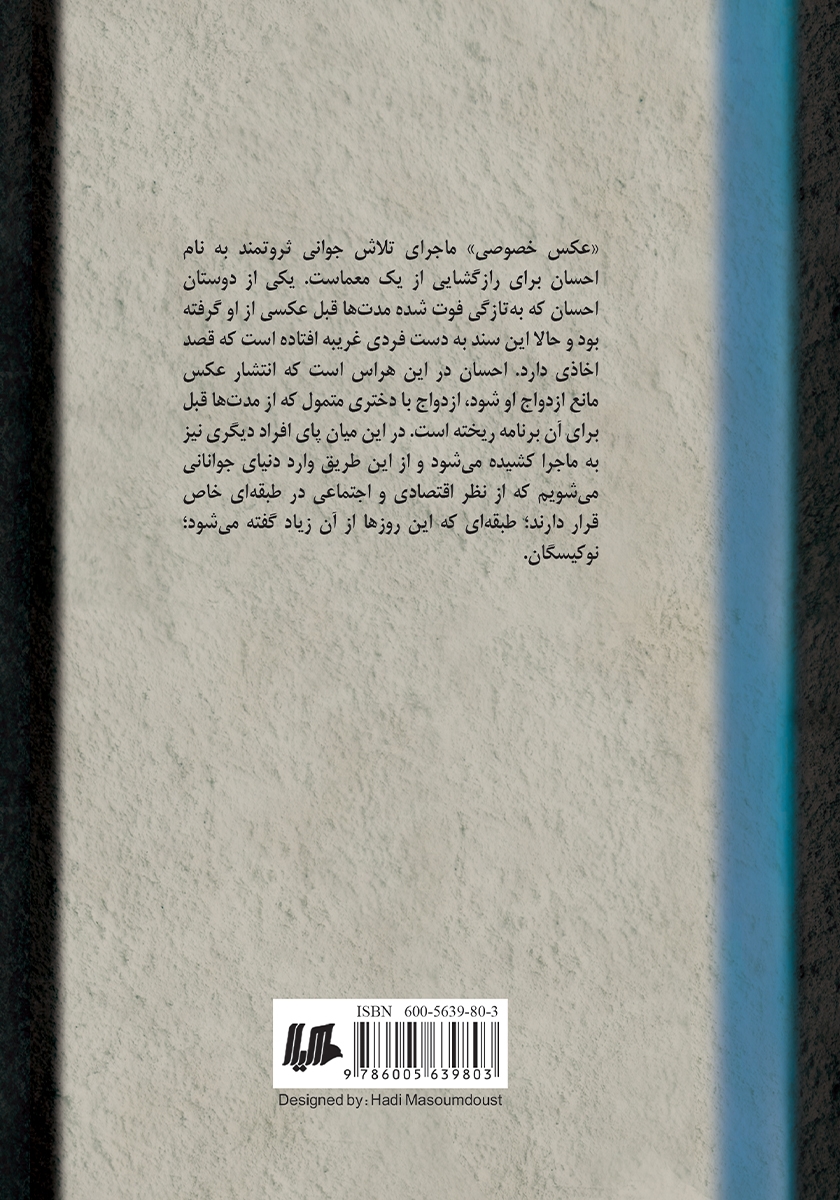 «عکس خصوصی» ماجرای تلاش جوانی ثروتمند به نام
احسان برای رازگشایی از یک معماست. یکی از دوستان
احسان که به‌تازگی فوت شده مدت‌ها قبل عکسی از او گرفته
بود و حالا این سند به دست فردی غریبه افتاده است که قصد
اخاذی دارد. احسان در این هراس است که انتشار عکس
مانع ازدواج او شود، ازدواج با دختری متمول که از مدت‌ها قبل
برای آن برنامه ریخته است. در این میان پای افراد دیگری نیز
به ماجرا کشیده می‌شود و از این طریق وارد دنیای جوانانی
می‌شویم که از نظر اقتصادی و اجتماعی در طبقه‌ای خاص
قرار دارند؛ طبقه‌ای که این روزها از آن زیاد گفته می‌شود؛
نوکیسگان.
ISBN 600-5639-80-3
هیلا
9 786005 639803
Designed by: Hadi Masoumdoust